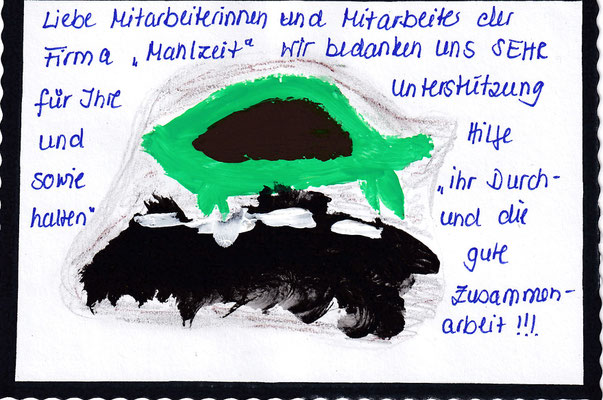 Liebe Mitarbeiterinnen und Mitarbeiter der
Firma „Mahlzeit“ wir bedanken uns SEHR
für Ihre unterstützung
und Hilfe
sowie „ihr Durch-
halten“ und die
gute
Zusammen-
arbeit!!!